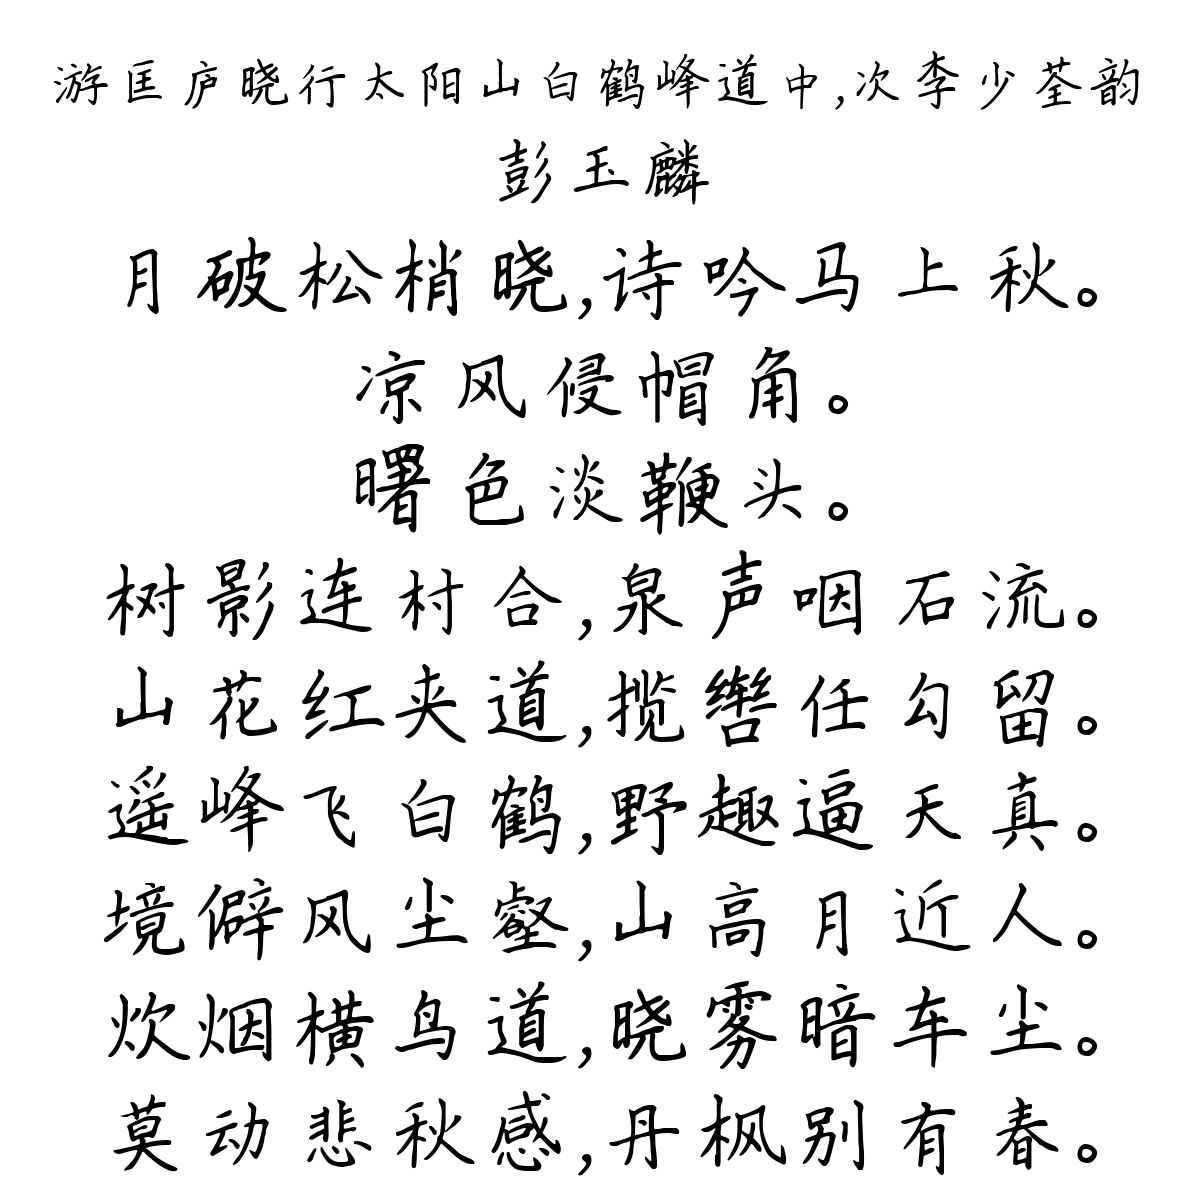 游匡庐晓行太阳山白鹤峰道中,次李少荃韵
彭玉麟
月破松梢晓,诗吟马上秋。
凉风侵帽角。
曙色淡鞭头。
树影连村合,泉声咽石流。
山花红夹道,揽辔任勾留。
遥峰飞白鹤,野趣逼天真。
境僻风尘壑,山高月近人。
炊烟横鸟道,晓雾暗车尘。
莫动悲秋感,丹枫别有春。